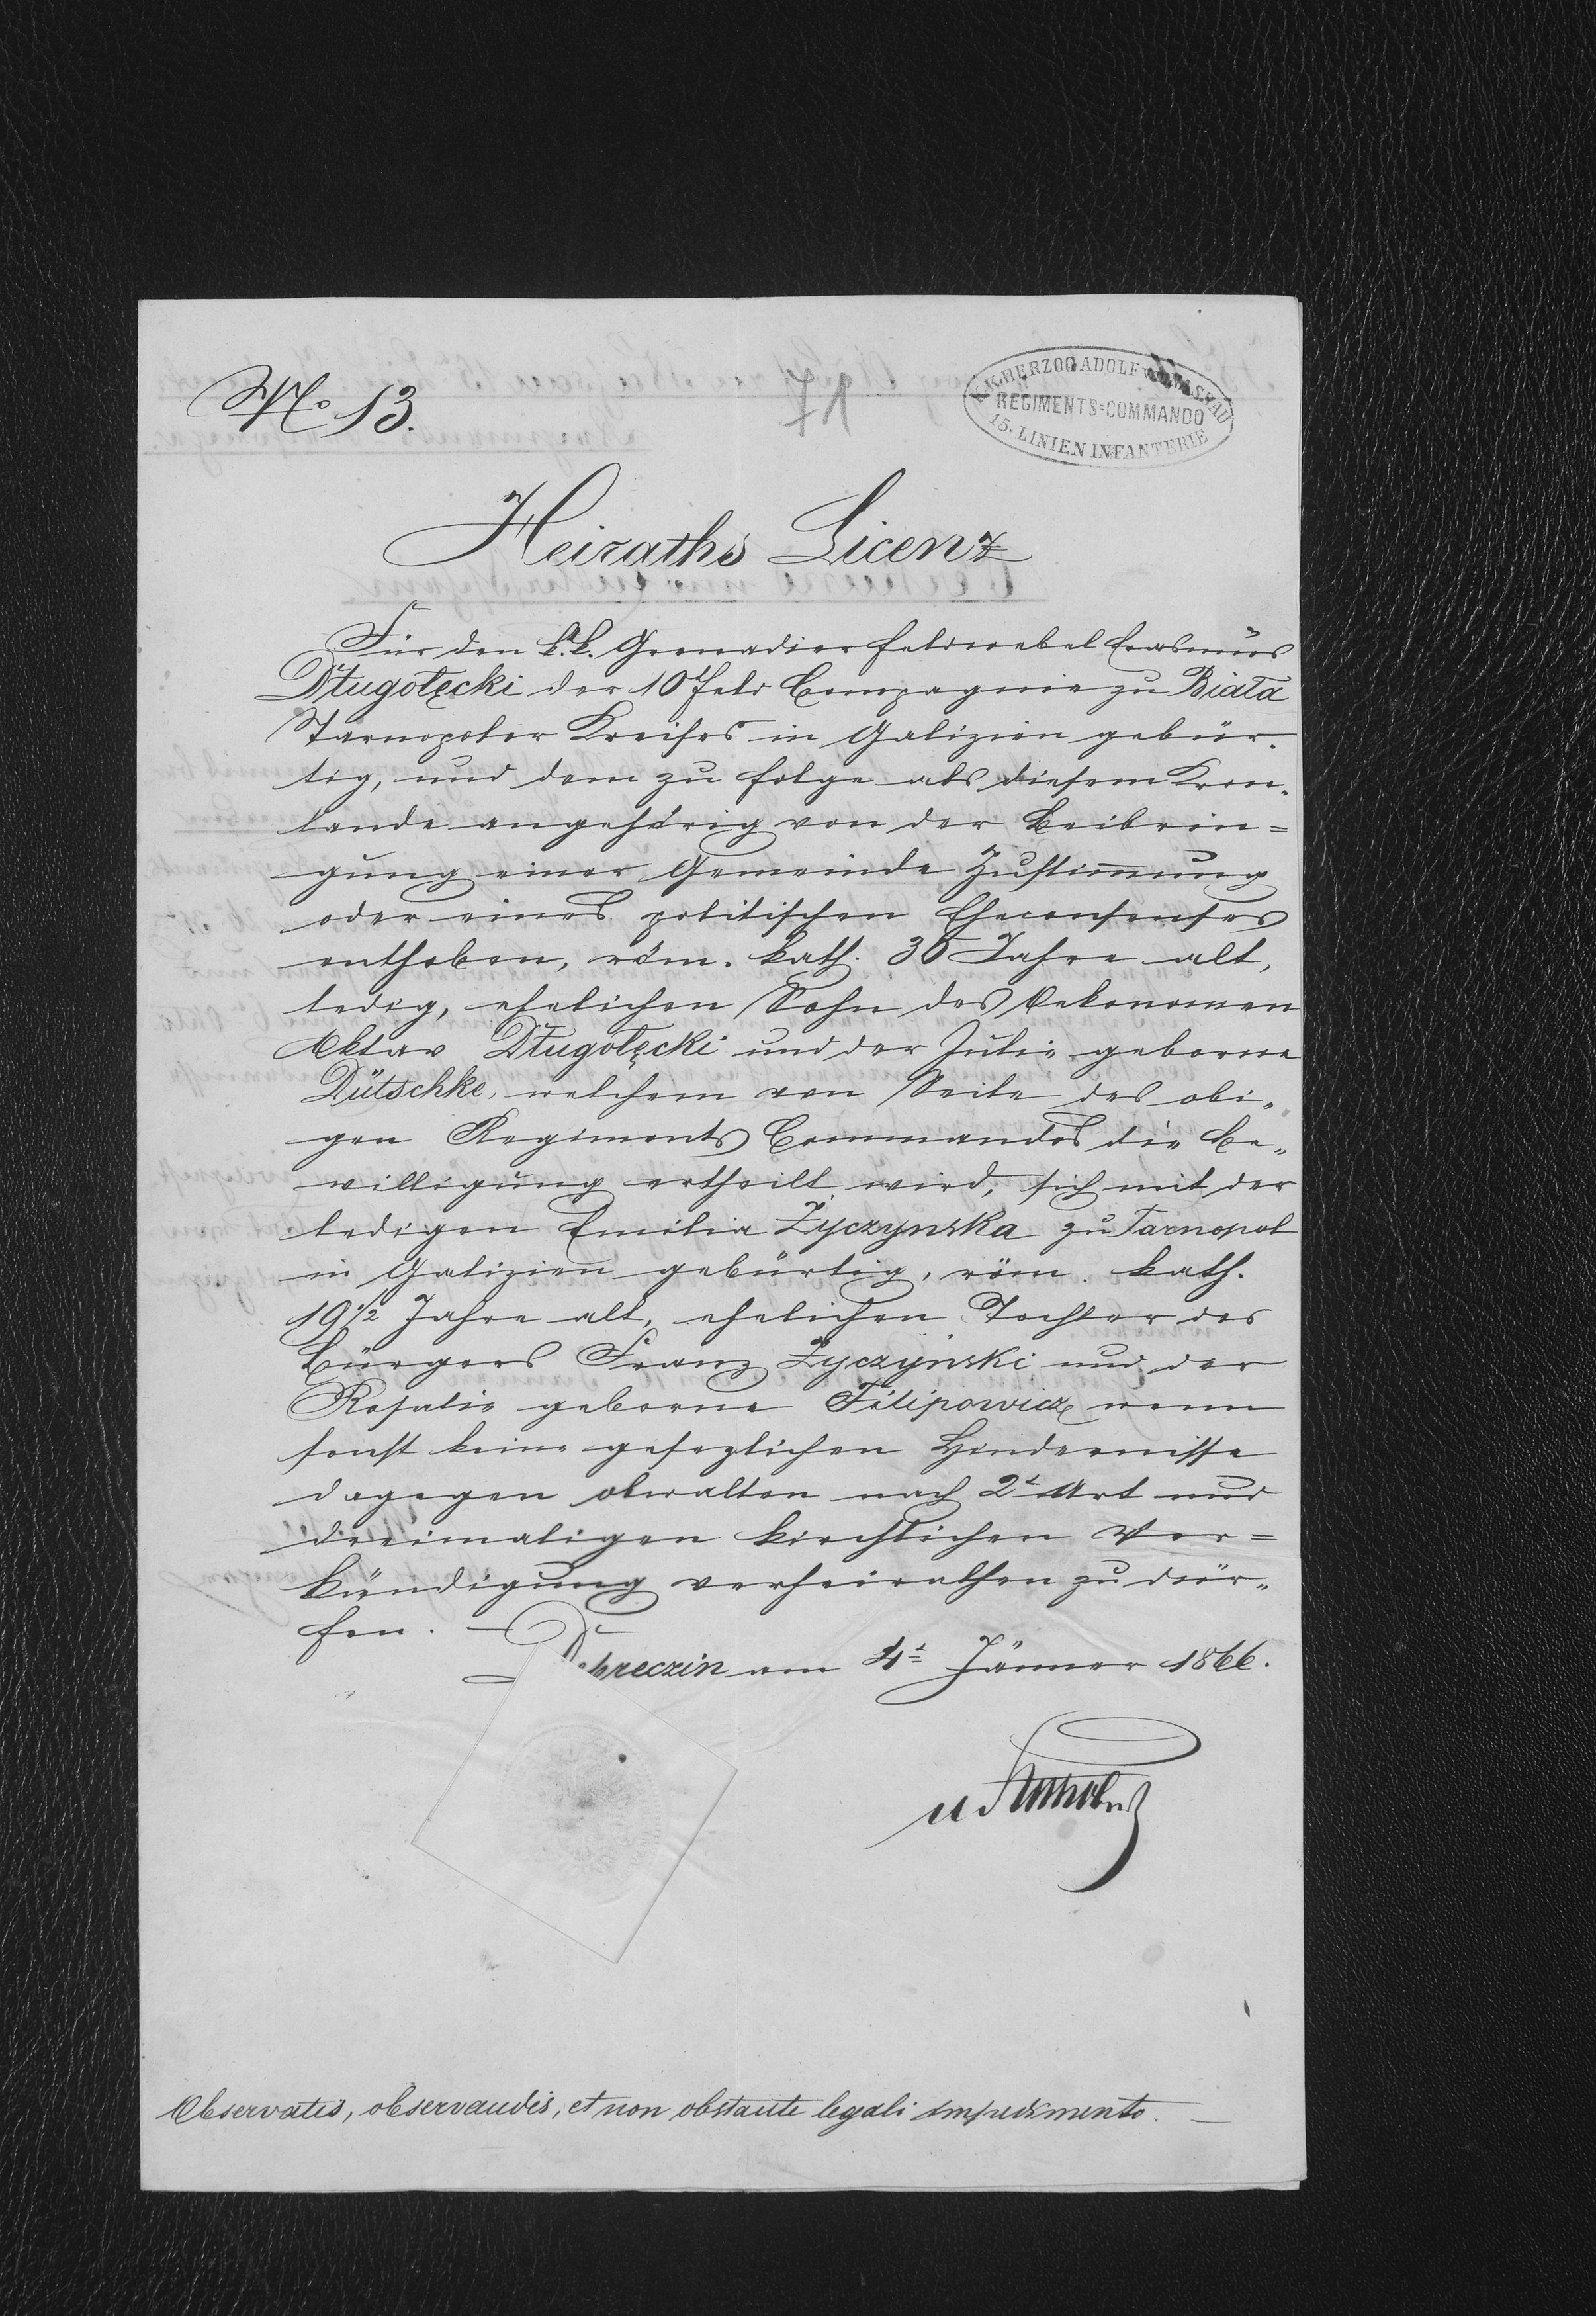 No 13.
71
K.K. HERZOG ADOLF NASSAU
REGIMENTS=COMMANDO
15. LINIEN INFANTERIE
Heiraths Licenz
Für den k.k. Grenadier Feldwebel Erasmus
Długołęcki der 10 Feld Compagnie zu Biała
Tarnopoler Kreises in Galizien gebür-
tig, und dem zu folge als diesem Kron-
lande angehörig von der Beibrin=
gung einer Gemeinde Zustimmung
oder eines politischen Eheconsenses
enthoben, röm. kath. 30 Jahre alt,
ledig, ehelichen Sohn des Oekonomen
Oktav Długołęcki und der Julie geborne
Dütschke, welchem von Seite des obi-
gen Regiments Commandos die Be-
willigung ertheilt wird, sich mit der
ledigen Emilia Życzynska zu Tarnopol
in Galizien gebürtig, röm. kath.
19 1/2 Jahre alt, ehelichen Tochter des
Bürgers Franz Życzyński und der
Rosalie geborne Filipowicz wenn
sonst keine gesezlichen Hindernisse
dagegen obwalten nach 2t Art und
dreimaligen kirchlichen Ver=
kündigung verheirathen zu dür-
fen.
Debreczin am 4t Jänner 1866.
Observatis, observandis, et non obstante legali impedimento.